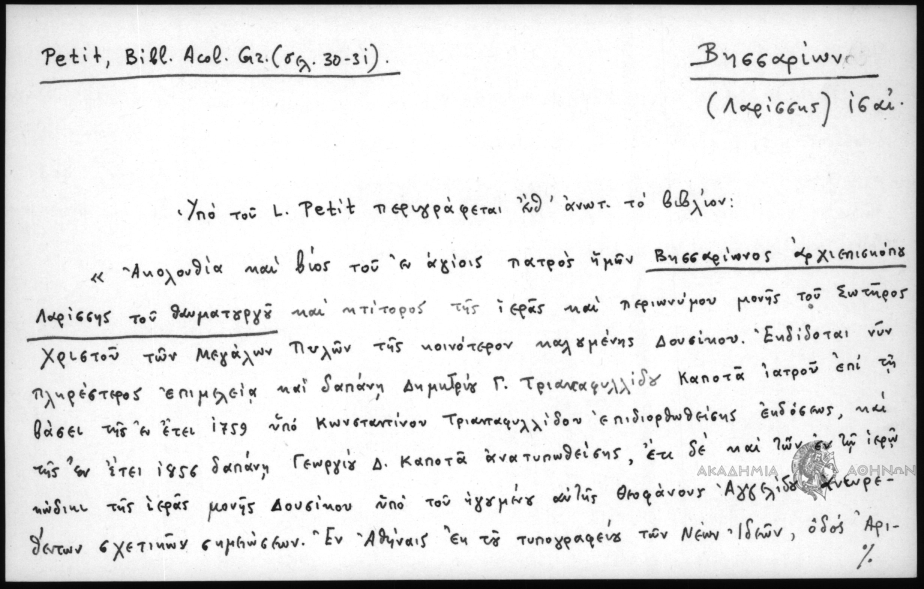 Petit, Bibl. Acol. Gr. (σελ. 30-31).
Βησσαρίων
(Λαρίσσης) ις αἰ.
Ὑπό τοῦ L. Petit περιγράφεται ἔνθ' ἀνωτ. τό βιβλίον:
« Ἀκολουθία καί βίος τοῦ ἐν ἁγίοις πατρός ἡμῶν Βησσαρίωνος ἀρχιεπισκόπου
Λαρίσσης τοῦ θαυματουργοῦ καί κτίτορος τῆς ἱερᾶς καί περιωνύμου μονῆς τοῦ Σωτῆρος
Χριστοῦ τῶν Μεγάλων Πυλῶν τῆς κοινότερον καλουμένης Δουσίκου. Ἐκδίδοται νῦν
πληρέστερος ἐπιμελείᾳ καί δαπάνῃ Δημητρίου Γ. Τριανταφυλλίδου Καποτᾶ ἰατροῦ ἐπί τῇ
βάσει τῆς ἐν ἔτει 1759 ὑπό Κωνσταντίνου Τριανταφυλλίδου ἐπιδιορθωθείσης ἐκδόσεως, καί
τῆς ἐν ἔτει 1856 δαπάνῃ Γεωργίου Δ. Καποτᾶ ἀνατυπωθείσης, ἔτι δέ καί τῶν ἐν τῷ ἱερῷ
κώδικι τῆς ἱερᾶς μονῆς Δουσίκου ὑπό τοῦ ἡγουμένου αὐτῆς Θεοφάνους Ἀγγελίδου ἀνευρε-
θέντων σχετικῶν σημειώσεων. Ἐν Ἀθήναις ἐκ τοῦ τυπογραφείου τῶν Νέων Ἰδεῶν, ὁδός Ἀρι-
%
ΑΚΑΔΗΜΙΑ ΑΘΗΝΩΝ